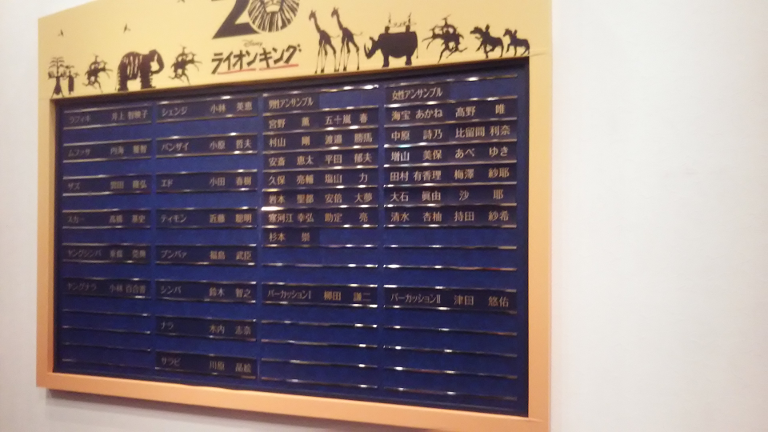 20
Disney
ライオンキング
ラフィキ 井上 智映子
ムファサ 内海 雅智
ザズ
スカー
ヤングシンバ
ヤングナラ 小林 百合香
シェンジ 小林 英恵
バンザイ 小原 哲夫
エド 小田 春樹
ティモン 近藤 聡明
プンバァ 福島 武臣
シンバ 鈴木 智之
ナラ 木内 志奈
サラビ 川原 晶絵
男性アンサンブル
宮野 薫 五十嵐 春
村山 剛 渡邉 勝馬
安斎 恵太 平田 郁夫
久保 亮輔 塩山 力
岩本 聖郡 安倍 大夢
寒河江 幸弘 助定 亮
杉本 崇
パーカッションⅠ 柳田 謙二
女性アンサンブル
海宝 あかね 高野 唯
中原 詩乃 比留間 利奈
増山 美保 あべ ゆき
田村 有香理 梅澤 紗耶
大石 眞由 沙 耶
清水 杏柚 持田 紗希
パーカッションⅡ 津田 悠佑